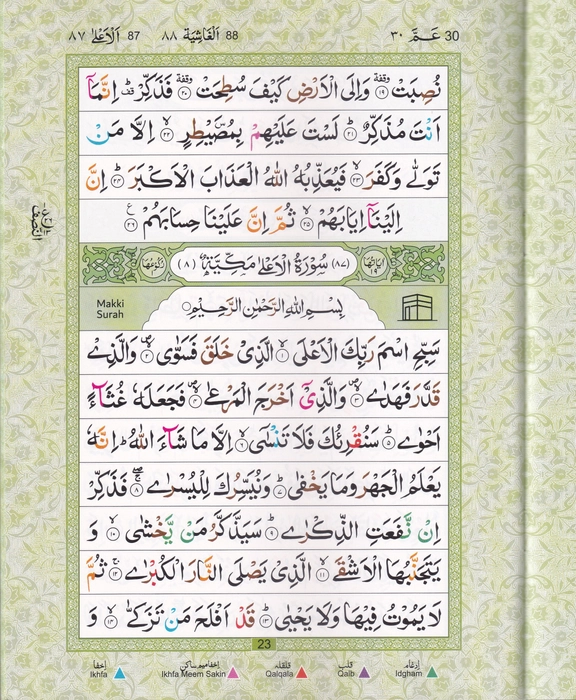 30 عَمَّ ٣٠ 88 اَلْغَاشِيَة ٨٨ 87 اَلْاَعْلٰى ٨٧
نُصِبَتْ ۟ وقفة ١٩ وَاِلَى الْاَرْضِ كَيْفَ سُطِحَتْ ۟ وقفة ٢٠ فَذَكِّرْ ؕ قف اِنَّمَاۤ
اَنْتَ مُذَكِّرٌ ؕ ٢١ لَسْتَ عَلَيْهِمْ بِمُصَۜيْطِرٍ ۙ ٢٢ اِلَّا مَنْ
تَوَلّٰى وَكَفَرَ ۙ ٢٣ فَيُعَذِّبُهُ اللّٰهُ الْعَذَابَ الْاَكْبَرَ ؕ ٢٤ اِنَّ
اِلَيْنَاۤ اِيَابَهُمْ ۙ ٢٥ ثُمَّ اِنَّ عَلَيْنَا حِسَابَهُمْ ٪ ٢٦
النصف
اٰيَاتُهَا ١٩ (٨٧) سُوْرَةُ الْاَعْلٰى مَكِّيَّةٌ (٨) رُكُوْعُهَا
بِسْمِ اللّٰهِ الرَّحْمٰنِ الرَّحِيْمِ
Makki
Surah
سَبِّحِ اسْمَ رَبِّكَ الْاَعْلَى ۙ ١ الَّذِيْ خَلَقَ فَسَوّٰى ۪ۙ ٢ وَالَّذِيْ
قَدَّرَ فَهَدٰى ۪ۙ ٣ وَالَّذِيْۤ اَخْرَجَ الْمَرْعٰى ۪ۙ ٤ فَجَعَلَهٗ غُثَآءً
اَحْوٰى ؕ ٥ سَنُقْرِئُكَ فَلَا تَنْسٰۤى ۙ ٦ اِلَّا مَا شَآءَ اللّٰهُ ؕ اِنَّهٗ
يَعْلَمُ الْجَهْرَ وَمَا يَخْفٰى ؕ ٧ وَنُيَسِّرُكَ لِلْيُسْرٰى ۚۖ ٨ فَذَكِّرْ
اِنْ نَّفَعَتِ الذِّكْرٰى ؕ ٩ سَيَذَّكَّرُ مَنْ يَّخْشٰى ۙ ١٠ وَ
يَتَجَنَّبُهَا الْاَشْقَى ۙ ١١ الَّذِيْ يَصْلَى النَّارَ الْكُبْرٰى ۚ ١٢ ثُمَّ
لَا يَمُوْتُ فِيْهَا وَلَا يَحْيٰى ؕ ١٣ قَدْ اَفْلَحَ مَنْ تَزَكّٰى ۙ ١٤ وَ
23
اِدْغَام قَلْب قَلْقَلَة اِخْفَا مِيْم سَاكِن اِخْفَا
Idgham Qalb Qalqala Ikhfa Meem Sakin Ikhfa